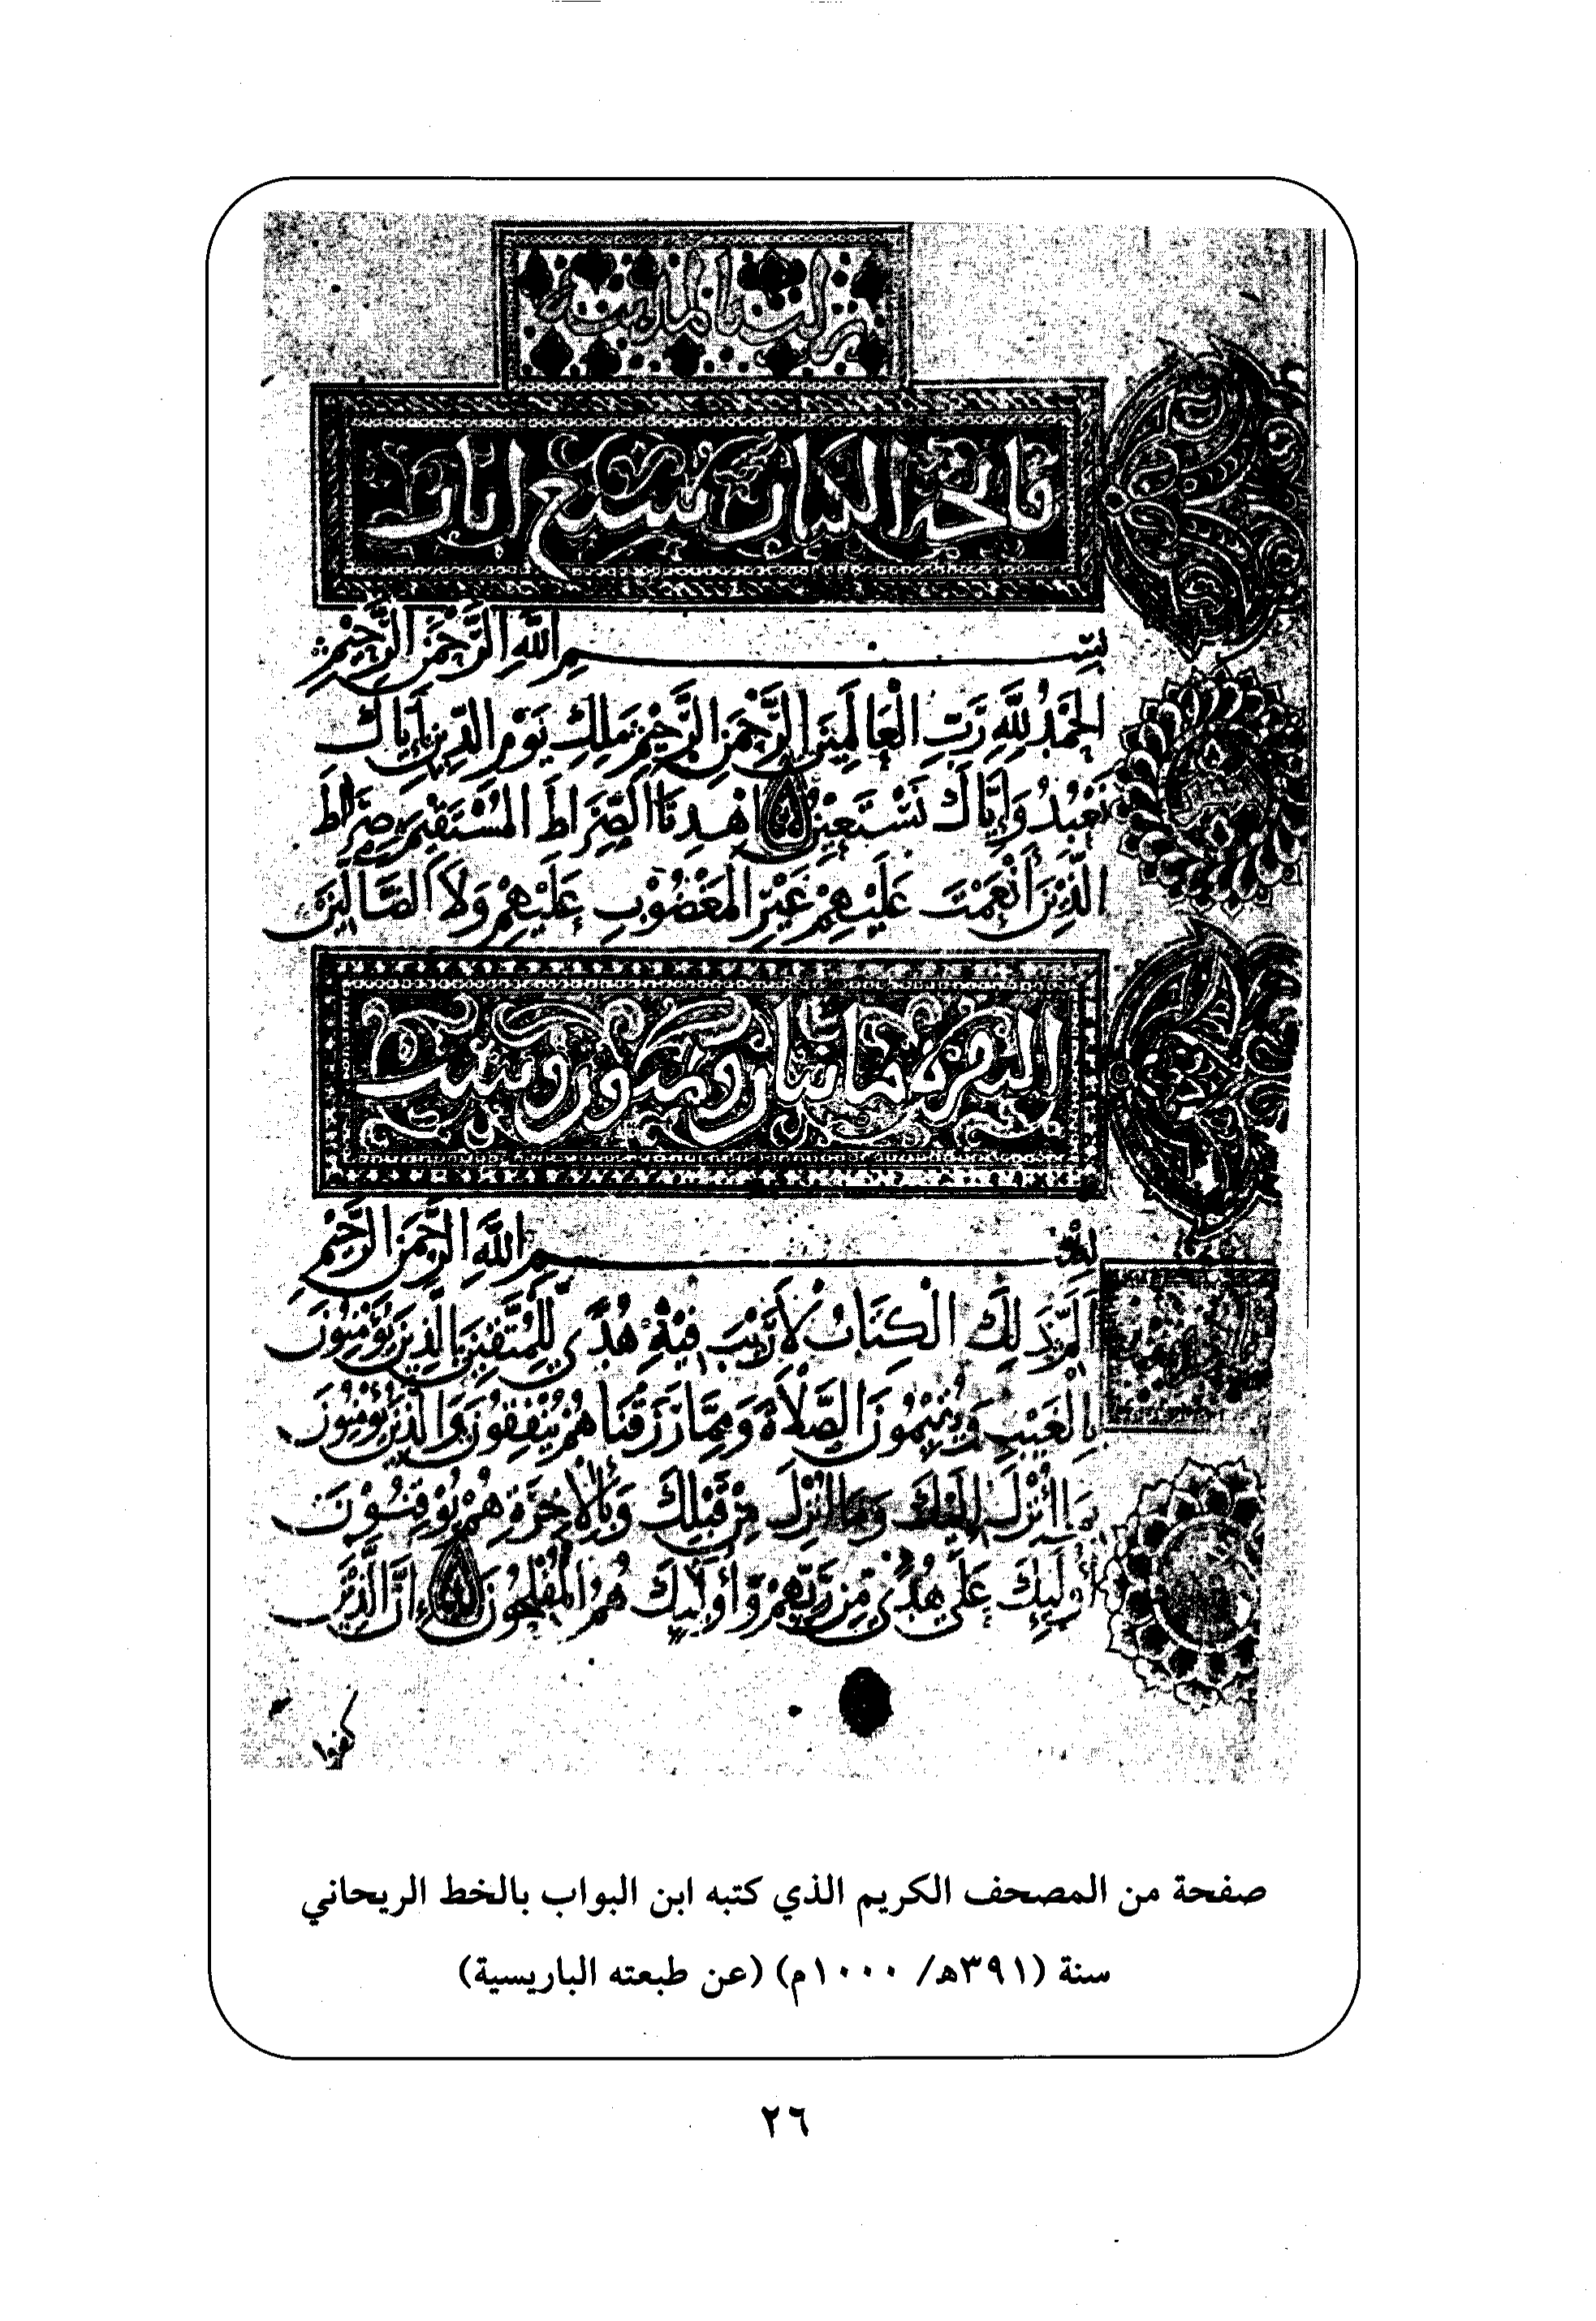 فاتحة الكتاب سبع ايات
بِسْمِ اللَّهِ الرَّحْمَنِ الرَّحِيمِ
الْحَمْدُ لِلَّهِ رَبِّ الْعَالَمِينَ الرَّحْمَنِ الرَّحِيمِ مَلِكِ يَوْمِ الدِّينِ إِيَّاكَ
نَعْبُدُ وَإِيَّاكَ نَسْتَعِينُ اهْدِنَا الصِّرَاطَ الْمُسْتَقِيمَ صِرَاطَ
الَّذِينَ أَنْعَمْتَ عَلَيْهِمْ غَيْرِ الْمَغْضُوبِ عَلَيْهِمْ وَلَا الضَّالِّينَ
البقرة مائتان وثمنون وست
بِسْمِ اللَّهِ الرَّحْمَنِ الرَّحِيمِ
الم ذَلِكَ الْكِتَابُ لَا رَيْبَ فِيهِ هُدًى لِلْمُتَّقِينَ الَّذِينَ يُؤْمِنُونَ
بِالْغَيْبِ وَيُقِيمُونَ الصَّلَاةَ وَمِمَّا رَزَقْنَاهُمْ يُنْفِقُونَ وَالَّذِينَ يُؤْمِنُونَ
بِمَا أُنْزِلَ إِلَيْكَ وَمَا أُنْزِلَ مِنْ قَبْلِكَ وَبِالْآخِرَةِ هُمْ يُوقِنُونَ
أُولَئِكَ عَلَى هُدًى مِنْ رَبِّهِمْ وَأُولَئِكَ هُمُ الْمُفْلِحُونَ إِنَّ الَّذِينَ
كفروا
صفحة من المصحف الكريم الذي كتبه ابن البواب بالخط الريحاني
سنة (٣٩١هـ/ ١٠٠٠م) (عن طبعته الباريسية)
٢٦